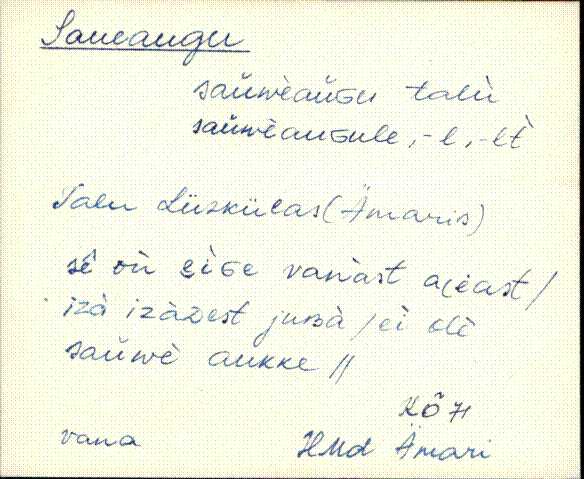 Saueaugu
saŭwèaŭGu talù
saŭwèauGule, -l, -lt̀
Talu Lüzkülas (Ämaris)
sê oǹ eìGe vanàst aċèast /
izà izàdest juBà / eì olè
saŭwè aukke //
KÕ 71
vana HMd Ämari